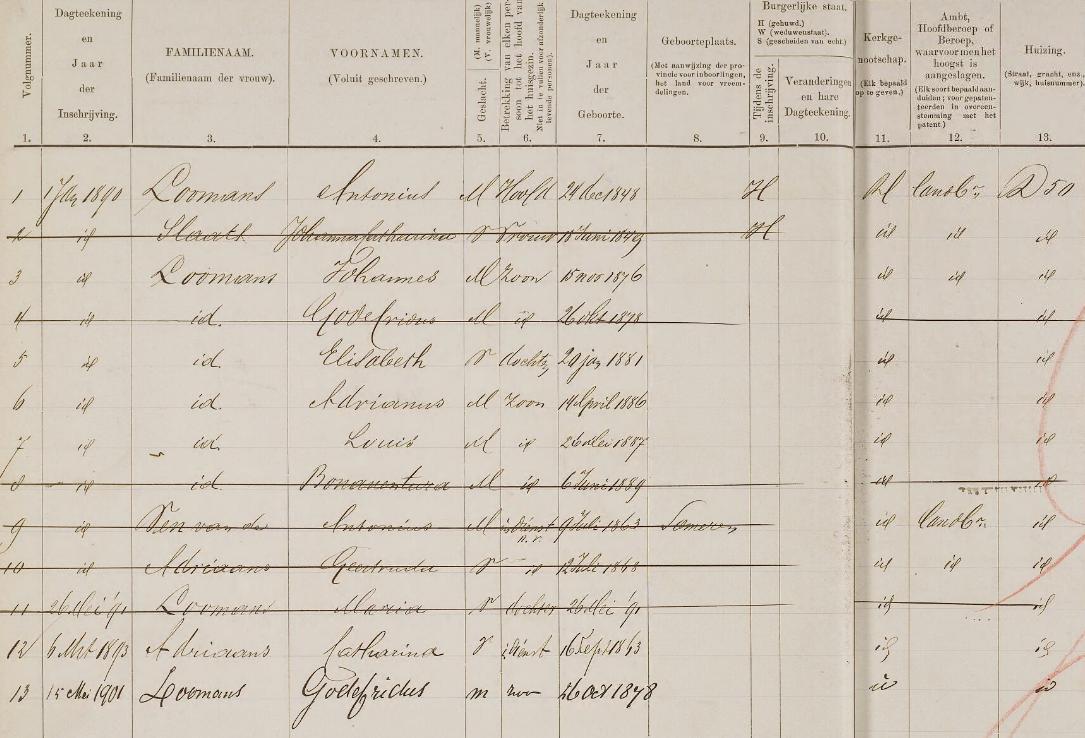 Volgnummer.
1.
Dagteekening
en
Jaar
der
Inschrijving.
2.
FAMILIENAAM.
(Familienaam der vrouw).
3.
VOORNAMEN.
(Voluit geschreven).
4.
(M. mannelijk)
(V. vrouwelijk)
Geslacht.
5.
Betrekking van elken per-
soon tot het hoofd van
het huisgezin.
Niet in te vullen voor afzonderlijk
levende personen).
6.
Dagteekening
en
Jaar
der
Geboorte.
7.
Geboorteplaats.
(Met aanwijzing der pro-
vincie voor inboorlingen,
het land voor vreem-
delingen.
8.
Burgerlijke staat.
H (gehuwd.)
W (weduwenstaat).
S (gescheiden van echt.)
Tijdens de
inschrijving.
9.
Veranderingen
en hare
Dagteekening.
10.
Kerkge-
nootschap.
(Elk bepaald
op te geven.)
11.
Ambt,
Hoofdberoep of
Beroep,
waarvoor men het
hoogst is
aangeslagen.
(Elk soort bepaald aan-
duiden; voor gepaten-
teerden in overeen-
stemming met het
patent.)
12.
Huizing.
(Straat, gracht, enz.,
wijk, huisnummer).
13.
1 1 Jan 1890 Loomans Antonius M Hoofd 24 dec 1848 H RK landbr D 50
2 id Slaats Johanna Catharina V Vrouw 18 Juni 1849 H id id id
3 id Loomans Johannes M Zoon 15 nov 1876 id id id
4 id id. Godefridus M id 26 okt 1878 id id
5 id id. Elisabeth V dochter 20 jan 1881 id id
6 id id. Adrianus M Zoon 14 April 1886 id id
7 id id. Louis M id 26 Mei 1887 id id
8 id id. Bonaventura M id 6 Juni 1889 id id
9 id Ven van de Antonius M i. dienst 9 Juli 1863 Someren id landbr. id
10 id Adriaans Geertruda V id 12 Juli 1868 id id id
11 26 Mei '91 Loomans Maria V dochter 26 Mei '91 id id
12 6 Mrt 1893 Adriaans Catharina V i dienst 16 Sept 1863 id id
13 15 Mei 1901 Loomans Godefridus m zoon 26 Oct 1878 id id